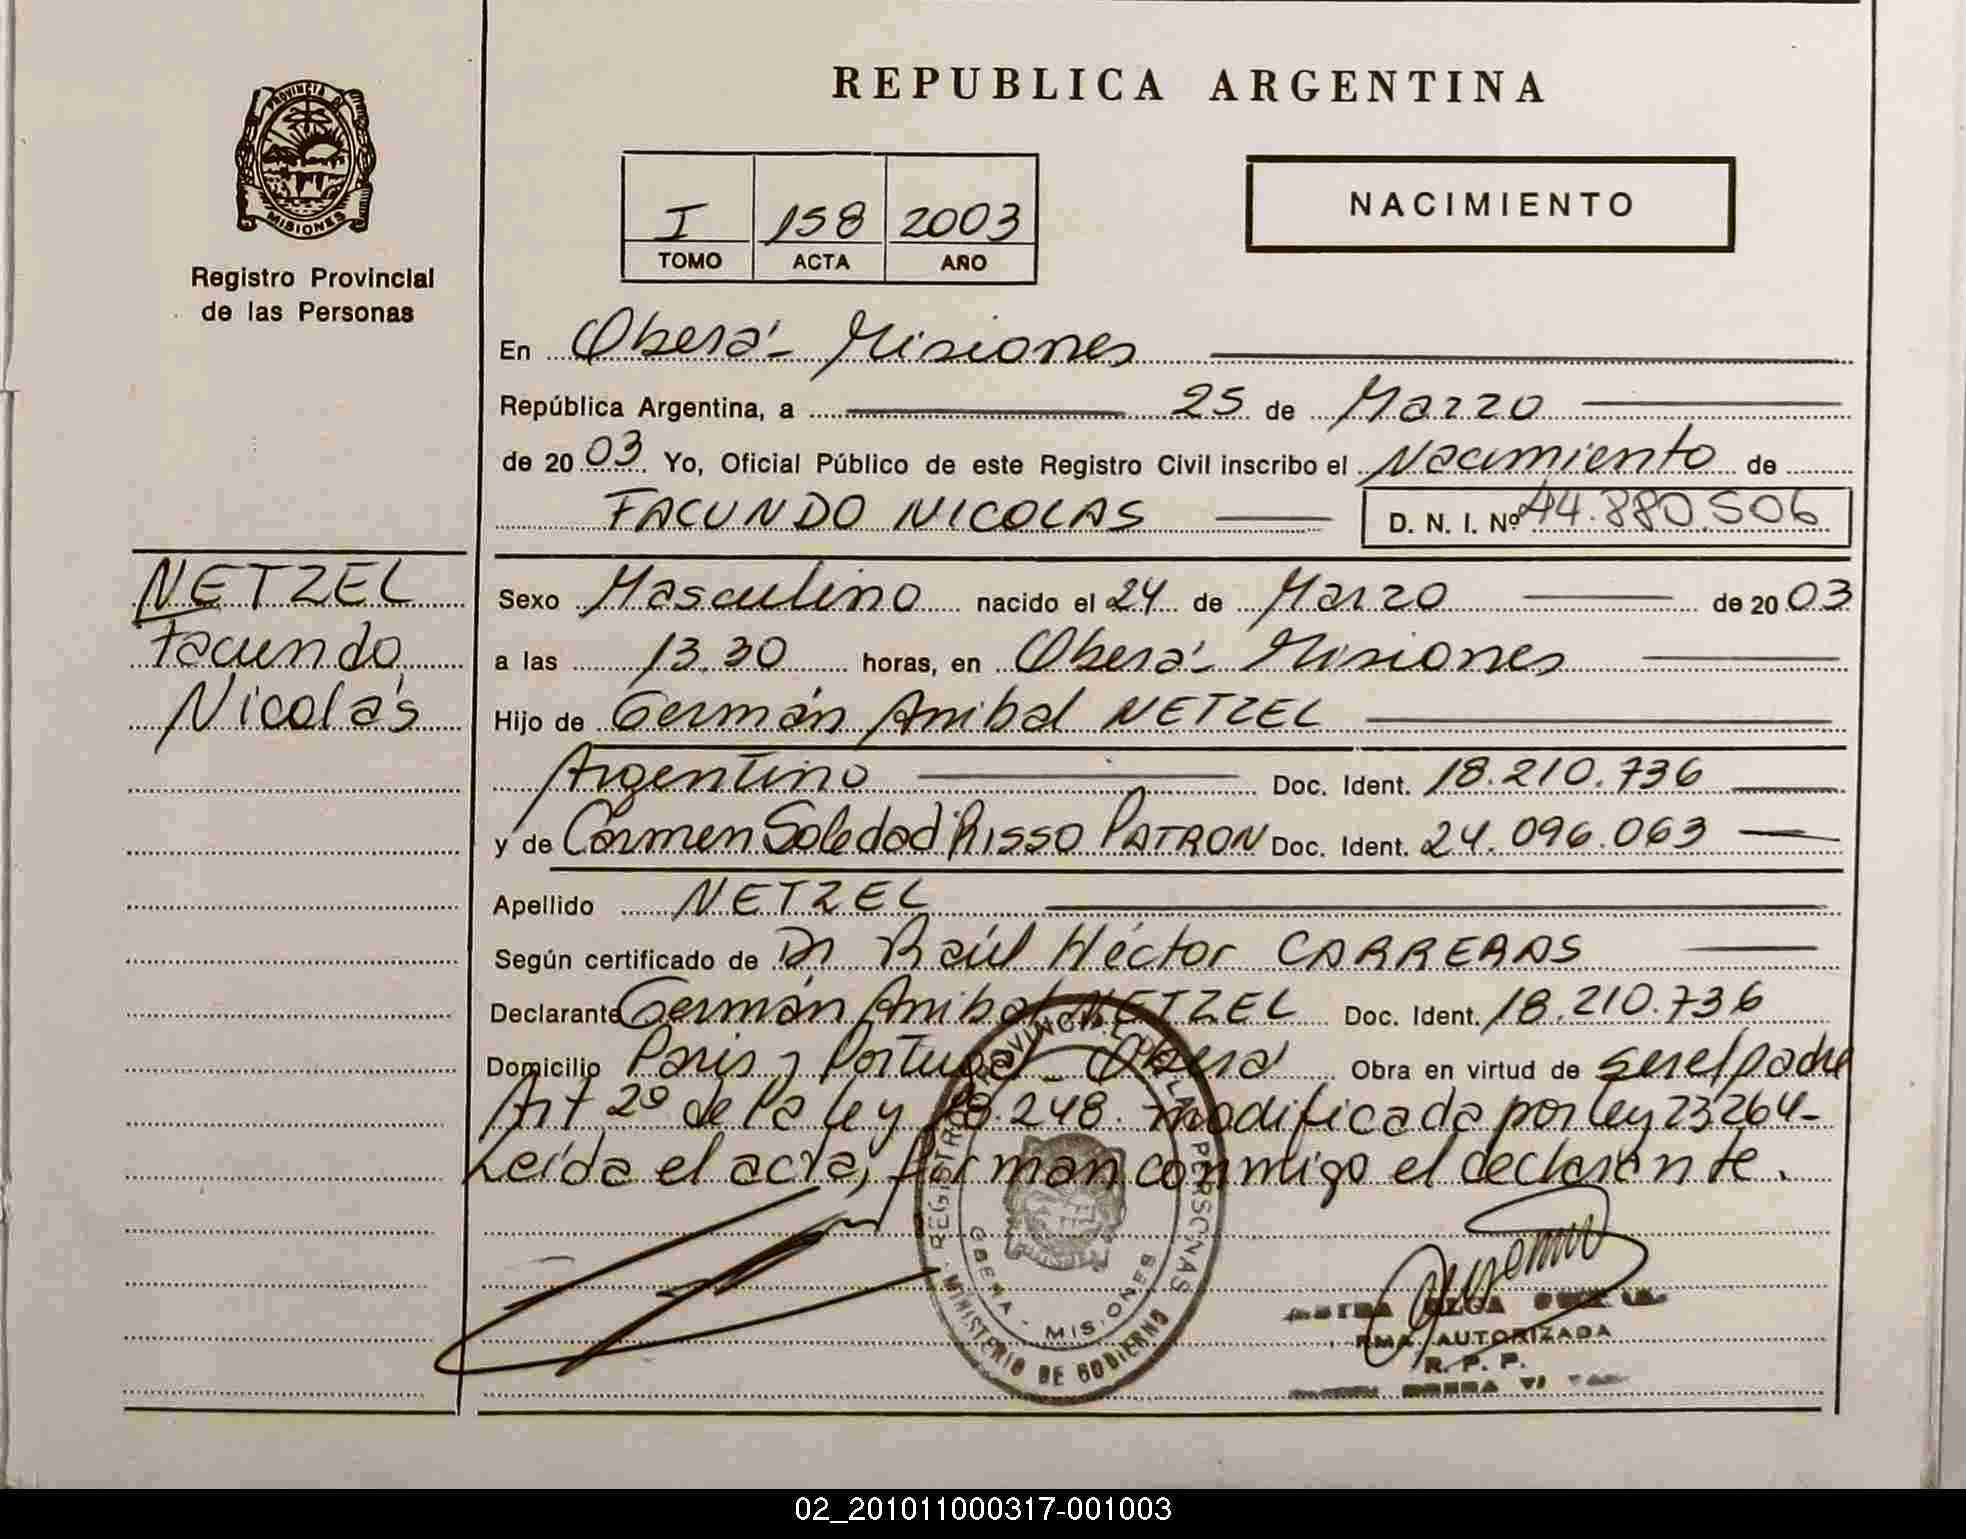 REPUBLICA ARGENTINA
PROVINCIA DE
MISIONES
Registro Provincial
de las Personas
I 158 2003
TOMO ACTA AÑO
NACIMIENTO
En Oberá - Misiones
República Argentina, a 25 de Marzo
de 20 03 Yo, Oficial Público de este Registro Civil inscribo el Nacimiento de
FACUNDO NICOLAS D. N. I. Nº 44.880.506
NETZEL
Facundo
Nicolás
Sexo Masculino nacido el 24 de Marzo de 20 03
a las 13.30 horas, en Oberá - Misiones
Hijo de Germán Anibal NETZEL
Argentino Doc. Ident. 18.210.736
y de Carmen Soledad RISSO PATRON Doc. Ident. 24.096.063
Apellido NETZEL
Según certificado de Dr Raúl Héctor CARRERAS
Declarante Germán Anibal NETZEL Doc. Ident. 18.210.736
Domicilio Paris y Portugal - Oberá Obra en virtud de ser el padre
Art 2º de la ley 18.248. modificada por ley 23264-
Leída el acta, firman conmigo el declarante.
REGISTRO PROVINCIAL DE LAS PERSONAS
OBERA - MISIONES
MINISTERIO DE GOBIERNO
OLGA
AUTORIZADA
R. P. P.
02_201011000317-001003